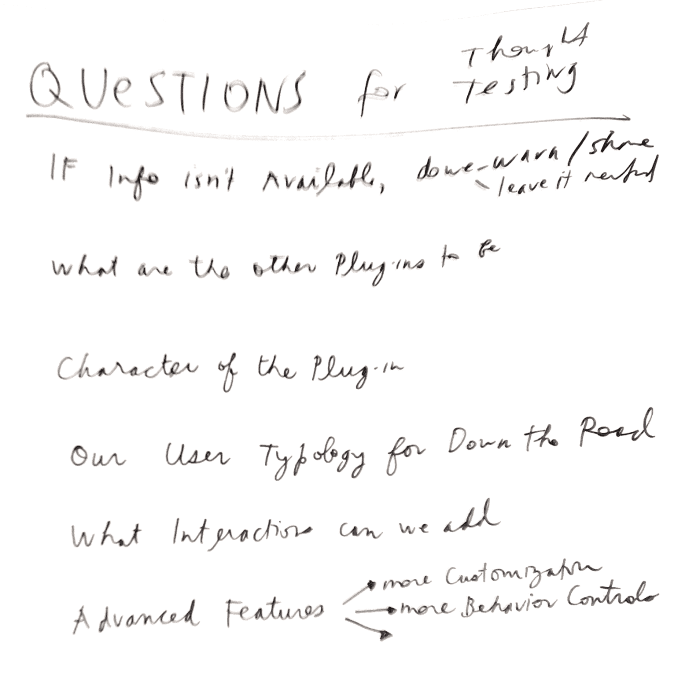 QUESTIONS for Thought Testing
IF Info isn't Available, do we - warn / shame
leave it neutral
What are the other Plug-ins to be
Character of the Plug-in
Our User Typology for Down the Road
What Interactions can we add
Advanced Features
more Customization
more Behavior Controls